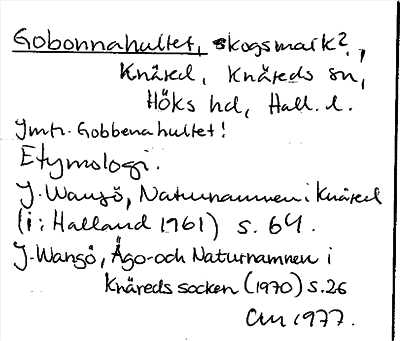 Gobonnahultet, skogsmark?,
Knäred, Knäreds sn,
Höks hd, Hall. l.
Jmfr. Gobbenahultet!
Etymologi.
J. Wangö, Naturnamnen i Knäred
(i: Halland 1961) s. 64.
J. Wangö, Ägo- och Naturnamnen i
Knäreds socken (1970) s. 26
1977.